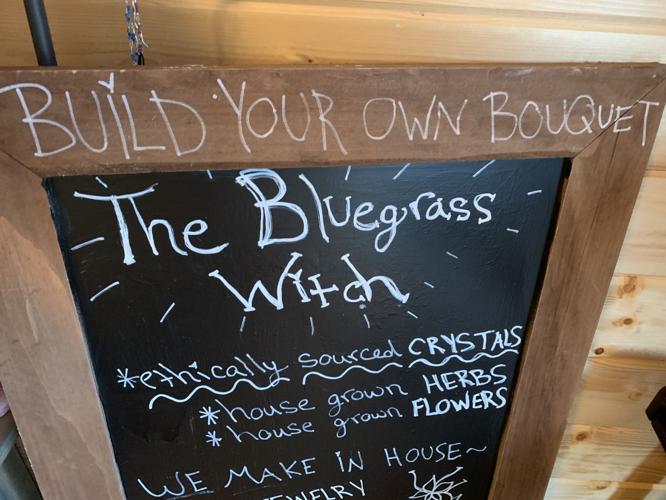 BUiLD YOUR OWN BOUQUET
The Bluegrass
Witch
*ethically sourced CRYSTALS
*house grown HERBS
*house grown FLOWERS
WE MAKE IN HOUSE~
JEWELRY